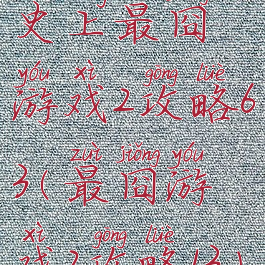 史上最囧
yóu xì gōng lüè
游戏2攻略6
zuì jiǒng yóu
3(最囧游
xì gōng lüè
戏2攻略63)